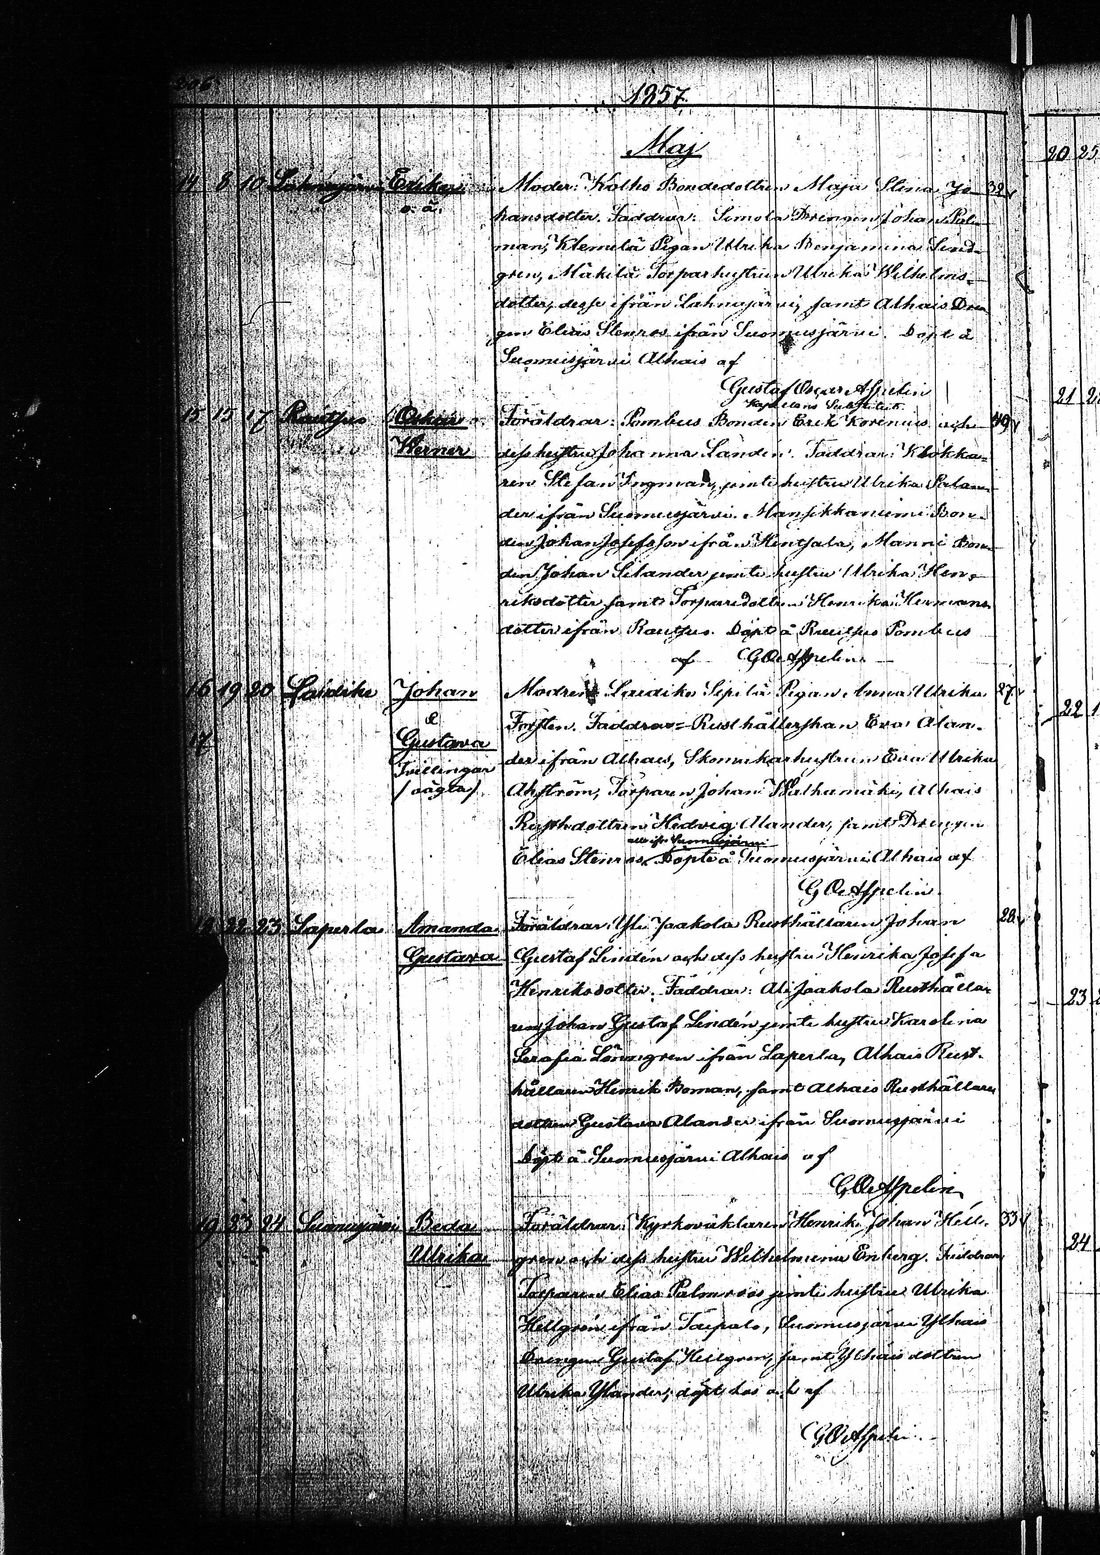 206.
1857.
Maj
14 8 10 Lahnajärvi Erika Moder: Kolho Bondedottren Maja Stina Jo- 32
o. ä. hansdotter. Faddrar: Simola Drengen Johan Palu-
man, Klemelä Pigan Ulrika Benjamina Lind-
gren, Mäkilä Torparhustrun Ulrika Wilhelms-
dotter, desse ifrån Lahnajärvi, samt Alhais Dren-
gen Elias Stenros ifrån Suomusjärvi. Döpt å
Suomusjärvi Alhais af
Gustaf Oscar Aspelin
Kapellans Substitut.
15 15 17 Rautsuo Oskar Föräldrar: Pombus Bonden Erik Korenius och 40
Werner dess hustru Johanna Landén. Faddrar: Klokka-
ren Stefan Ingman, jemte hustru Ulrika Salan-
der ifrån Suomusjärvi. Mansikkaniemi Bon-
den Johan Josefsson ifrån Hintsala, Manni Bon-
den Johan Silander jemte hustru Ulrika Hen-
riksdotter samt Torparedottren Henrika Hermans-
dotter ifrån Rautsuo. Döpt å Rautsuo Pombus
af G O Aspelin.
16 19 20 Laidike Johan Modren Laidike Sepilä Pigan Anna Ulrika 27
& Forstén. Faddrar: Rusthållerskan Eva Alan-
17 Gustava der ifrån Alhais, Skomakarhustrun Eva Ulrika
Tvillingar Ahlström, Torparen Johan Walkamäki, Alhais
(oägta) Rusthdottren Hedvig Alander, samt Drengen
alla ifr. Suomusjärvi
Elias Stenros. Döpte å Suomusjärvi Alhais af
G O Aspelin.
18 22 23 Laperla Amanda Föräldrar: Yli Jaakola Rusthållaren Johan 28
Gustava Gustaf Lindén och dess hustru Henrika Josefa
Henriksdotter. Faddrar: Ali Jaakola Rusthålla-
ren Johan Gustaf Lindén jemte hustru Karolina
Serafia Lönngren ifrån Laperla, Alhais Rust-
hållaren Henrik Boman, samt Alhais Rusthållare
dottren Gustava Alander ifrån Suomusjärvi
Döpt å Suomusjärvi Alhais af
G O Aspelin
19 23 24 Suomusjärvi Beda Föräldrar: Kyrkoväktaren Henrik Johan Hell- 33
Ulrika gren och dess hustru Wilhelmina Enberg. Faddrar
Torparen Elias Palmroos jemte hustru Ulrika
Hellgrén ifrån Taipale, Suomusjärvi Ylhais
Drengen Gustaf Hellgren, samt Ylhais dottren
Ulrika Ylander; döpt af
G O Aspelin.
20 25
21
22
23
24